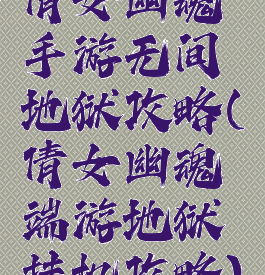 倩女幽魂
手游无间
地狱攻略(
倩女幽魂
端游地狱
挂机攻略)